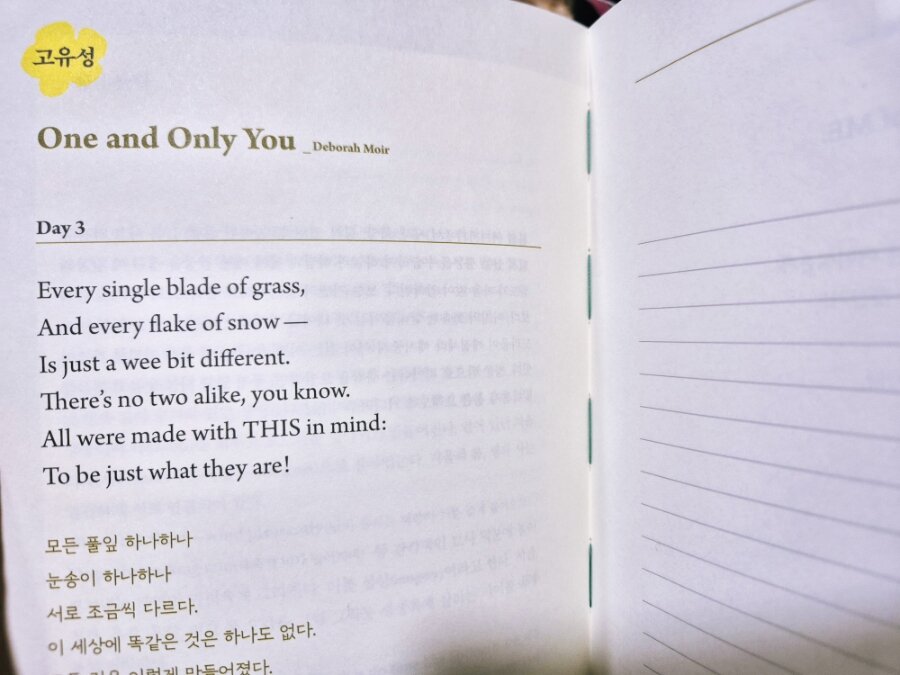 고유성
One and Only You _Deborah Moir
Day 3
Every single blade of grass,
And every flake of snow —
Is just a wee bit different.
There's no two alike, you know.
All were made with THIS in mind:
To be just what they are!
모든 풀잎 하나하나
눈송이 하나하나
서로 조금씩 다르다.
이 세상에 똑같은 것은 하나도 없다.
이렇게 만들어졌다.